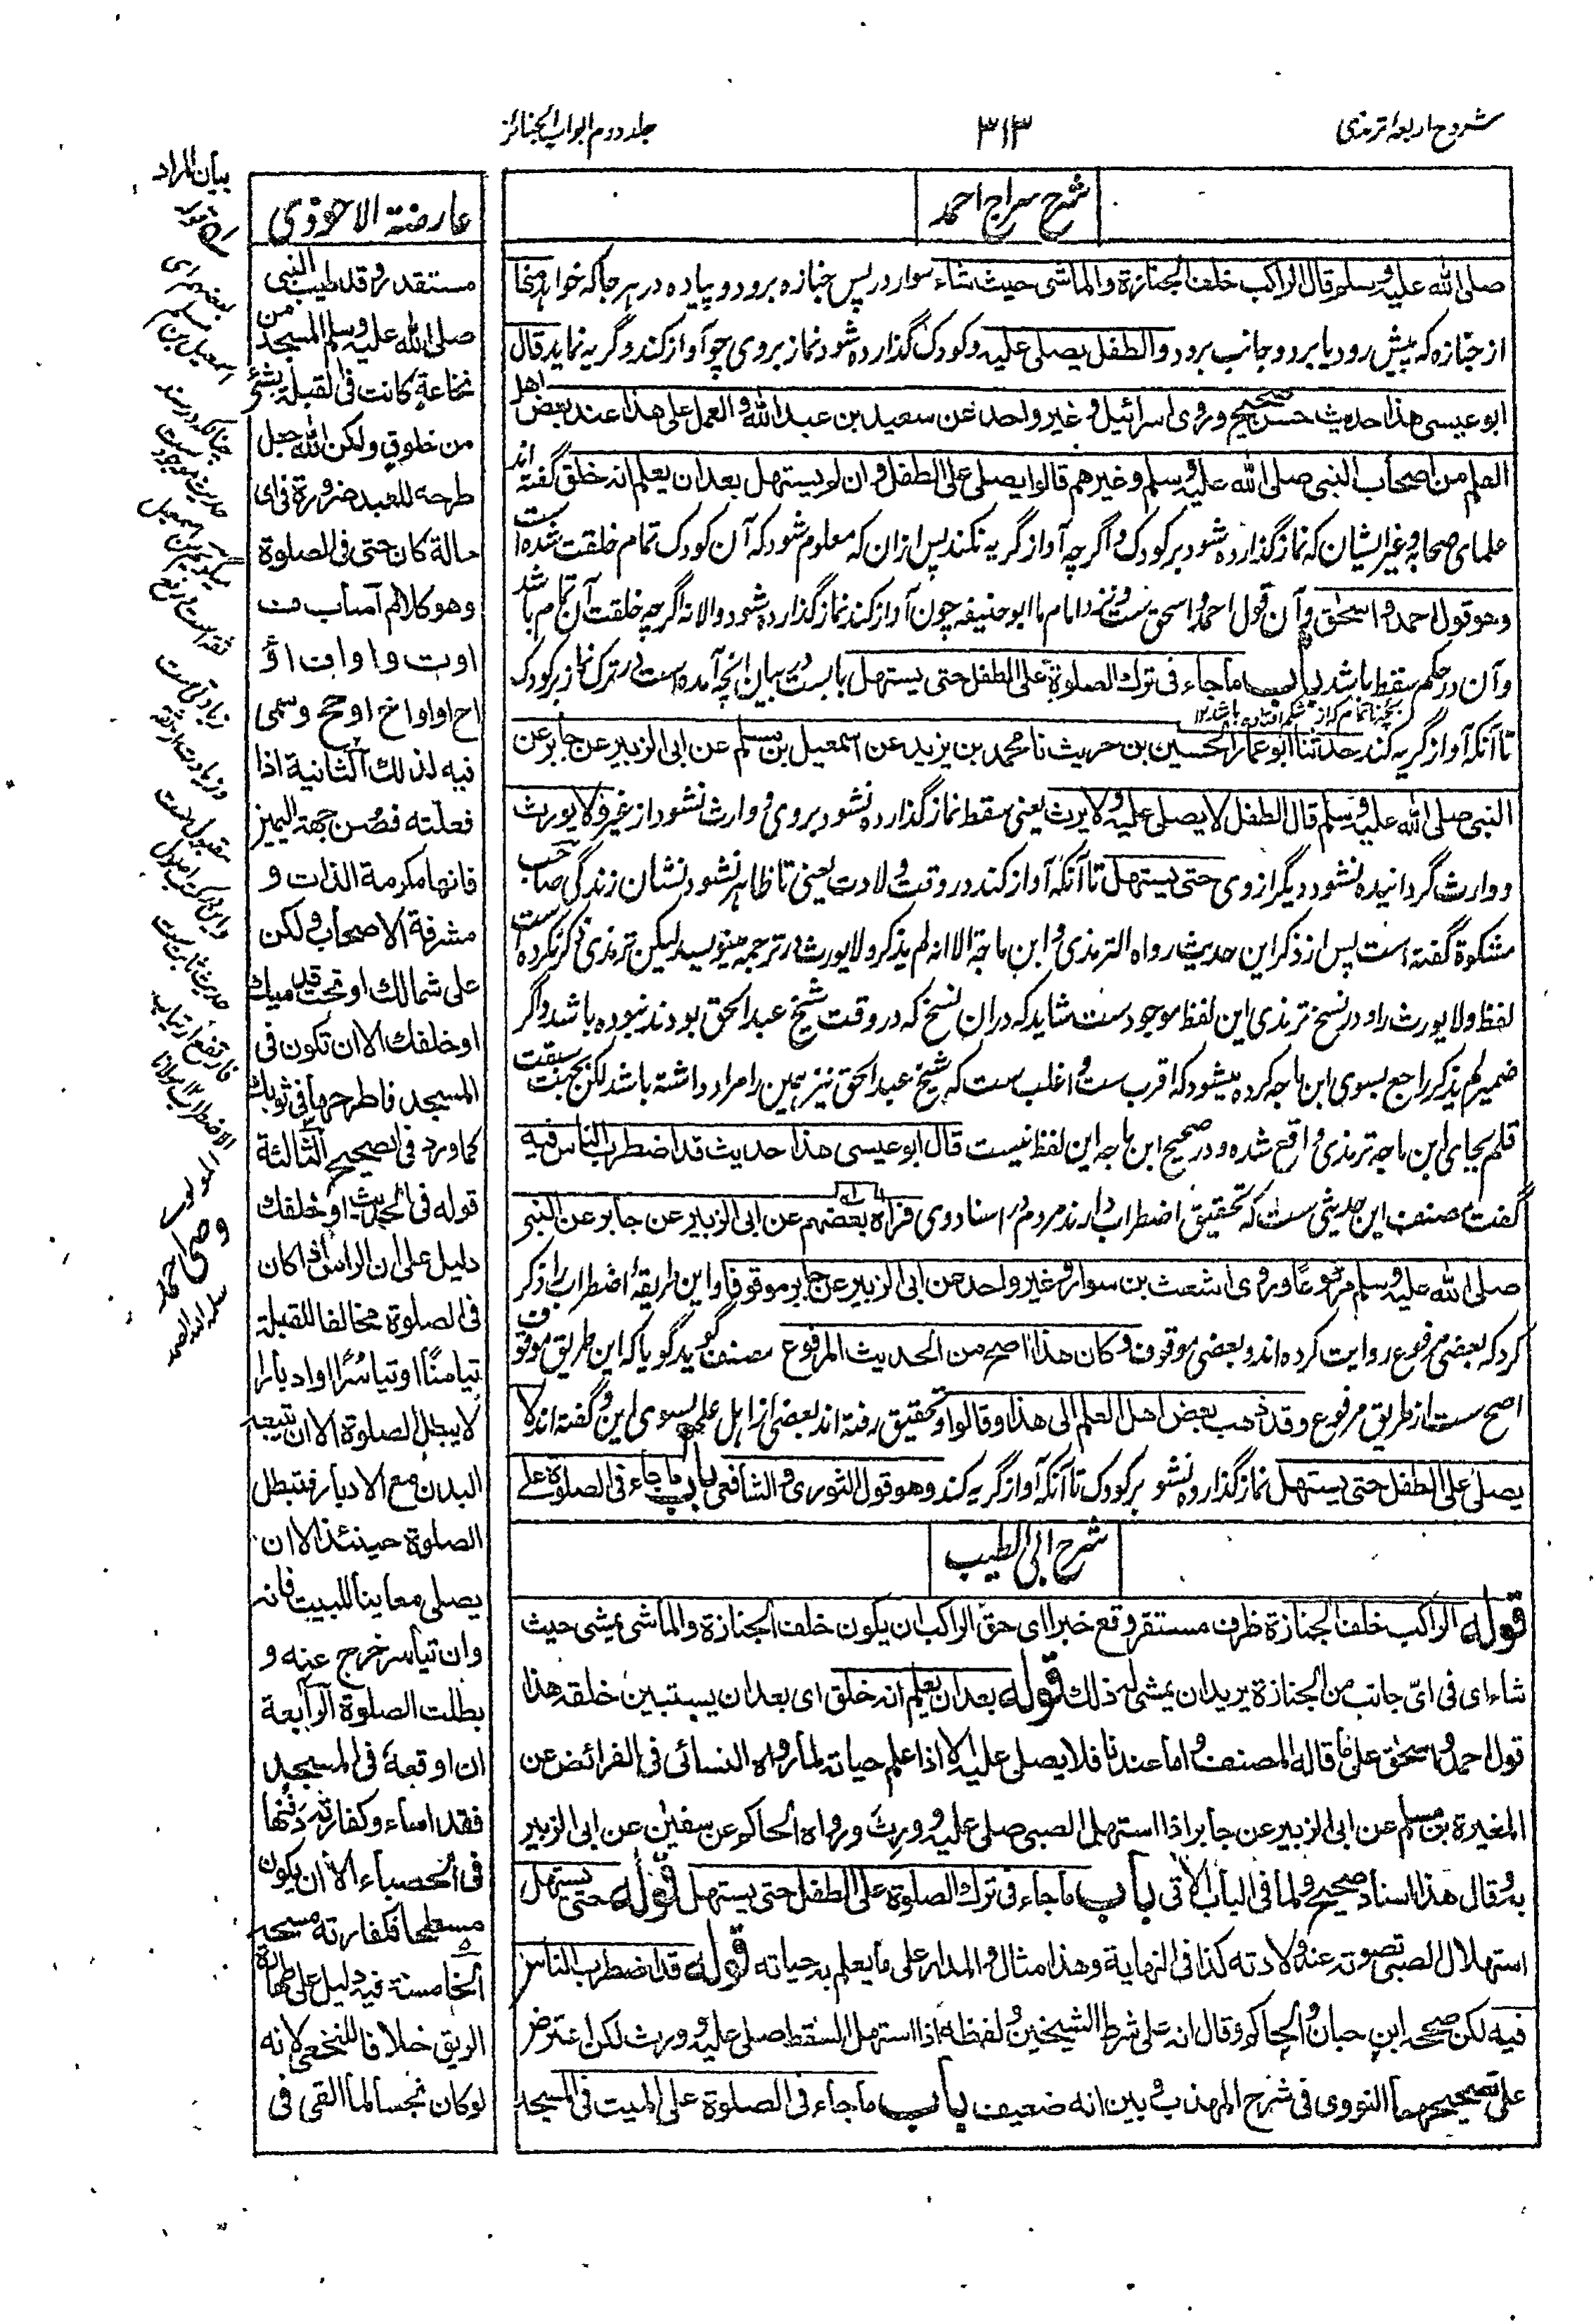 شروح اربعۀ ترمذی
۳۱۳
جلد دوم ابواب الجنائز
شرح سراج احمد
صلی الله علیه وسلم قال الراکب خلف الجنازة والماشی حیث شاء سوار در پس جنازه برود و پیاده در هر جا که خواهد منها
از جنازه که پیش رود یا بر دو جانب برود والطفل یصلی علیه و کودک گذارده شود نماز بر وی چو آواز کند و گریه نماید قال
ابو عیسی هذا حدیث حسن صحیح وروی اسرائیل وغیر واحد عن سعید بن عبد الله والعمل علی هذا عند بعض اهل
العلم من اصحاب النبی صلی الله علیه وسلم وغیرهم قالوا یصلی علی الطفل وان لم یستهل بعد ان یعلم انه خلق گفته اند
علمای صحابه و غیر ایشان که نماز گذارده شود بر کودک و اگرچه آواز گریه نکند پس ازان که معلوم شود که آن کودک تمام خلقت شده است
وهو قول احمد واسحٰق و آن قول احمد و اسحق ست و نزد امام ما ابو حنیفه چون آواز کند نماز گذارده شود والا نه اگرچه خلقت آن تمام باشد
و آن در حکم سقط باشد باب ما جاء فی ترك الصلوة علی الطفل حتی یستهل بابست در بیان آنچه آمده است در ترک نماز بر کودک
بچه ناتمام که از شکم افتاده باشد ۱۲
تا آنکه آواز گریه کند حدثنا ابو عمار الحسین بن حریث نا محمد بن یزید عن اسمعیل بن مسلم عن ابی الزبیر عن جابر عن
النبی صلی الله علیه وسلم قال الطفل لا یصلی علیه ولا یرث یعنی سقط نماز گذارده نشود بر وی و وارث نشود از غیر ولا یورث
و وارث گردانیده نشود دیگر از وی حتی یستهل تا آنکه آواز کند در وقت ولادت یعنی تا ظاهر نشود نشان زندگی صاحب
مشکوة گفته است پس از ذکر این حدیث رواه الترمذی وابن ماجة الا انه لم یذکر ولا یورث در ترجمه مینویسد لیکن ترمذی ذکر نکرده است
لفظ ولا یورث را و در نسخ ترمذی این لفظ موجود ست شاید که دران نسخ که در وقت شیخ عبد الحق بودند نبوده باشد و اگر
ضمیر لم یذکر راجع بسوی ابن ماجه کرده میشود که اقرب ست و اغلب ست که شیخ عبد الحق نیز همین را مراد داشته باشد لکن بجهت سبقت
قلم بجای ابن ماجه ترمذی واقع شده و در صحیح ابن ماجه این لفظ نیست قال ابو عیسی هذا حدیث قد اضطرب الناس فیه
گفت مصنف این حدیثی ست که تحقیق اضطراب دارند مردم در اسناد وی فرواه بعضهم عن ابی الزبیر عن جابر عن النبی
صلی الله علیه وسلم مرفوعا وروی اشعث بن سوار وغیر واحد عن ابی الزبیر عن جابر موقوفا و این طریقۀ اضطراب را ذکر
کرد که بعضی مرفوع روایت کرده اند و بعضی موقوف وکان هذا اصح من الحدیث المرفوع مصنف گوید گویا که این طریق موقوف
اصح ست از طریق مرفوع وقد ذهب بعض اهل العلم الی هذا وقالوا و تحقیق رفته اند بعضی از اهل علم بسوی این و گفته اند لا
یصلی علی الطفل حتی یستهل نماز گذارده نشود بر کودک تا آنکه آواز گریه کند وهو قول الثوری والشافعی باب ما جاء فی الصلوة علی
شرح ابی الطیب
قوله الراکب خلف الجنازة ظرف مستقر وقع خبرا ای حق الراکب ان یکون خلف الجنازة والماشی یمشی حیث
شاء ای فی ایّ جانب من الجنازة یرید ان یمشی له ذلك قوله بعد ان یعلم انه خلق ای بعد ان یستبین خلقه هذا
قول احمد واسحٰق علی ما قاله المصنف واما عندنا فلا یصلی علیه الا اذا علم حیاته لما رواه النسائی فی الفرائض عن
المغیرة بن مسلم عن ابی الزبیر عن جابر اذا استهل الصبی صلی علیه وورث ورواه الحاکم عن سفیٰن عن ابی الزبیر
به وقال هذا اسناد صحیح ولما فی الباب الاٰتی باب ما جاء فی ترك الصلوة علی الطفل حتی یستهل قوله حتی یستهل
استهلال الصبی تصوته عند ولادته کذا فی النهایة وهذا مثال والمدار علی ما یعلم به حیاته قوله قد اضطرب الناس
فیه لکن صححه ابن حبان والحاکم وقال انه علی شرط الشیخین ولفظه اذا استهل السقط صلی علیه وورث لکن اعترض
علی تصحیحهما النووی فی شرح المهذب وبین انه ضعیف باب ما جاء فی الصلوة علی المیت فی المسجد
عارضة الاحوذی
مستقذر وقد طیب النبی
صلی الله علیه وسلم المسجد من
نخاعة کانت فی القبلة بشئ
من خلوق ولکن الله جبل
طرحه للعبد ضرورة فی ای
حالة کان حتی فی الصلوة
وهو کلام آساب مت
اوت وا واف اؤ
اح او اواخ او حح وسمی
فیه لذلك الثانیة اذا
فعلته فصُن جهة الیمین
فانها مکرمة الذات و
مشرفة الاصحاب ولکن
علی شمالك او تحت قدمیك
او خلفك الا ان تکون فی
المسجد فاطرحها فی ثوبك
کما ورد فی الصحیح الثالثة
قوله فی الحدیث او خلفك
دلیل علی ان الراس اذا کان
فی الصلوة مخالفا للقبلة
تیامنًا او تیاسُرًا او ادبارا
لا یبطل الصلوة الا ان یتبعه
البدن مع الادبار فتبطل
الصلوة حینئذ الا ان
یصلی معاینا للبیت فانه
وان تیاسر خرج عنه و
بطلت الصلوة الرابعة
ان اوقعهٗ فی المسجد
فقد اساء وکفارته دفنها
فی الحصباء الا ان یکون
مسطحا فکفارته مسحه
الخامسة فیه دلیل علی طهارة
الریق خلافا للنخعی لانه
لو کان نجسا لما القی فی
بیان المراد
قوله
بعضهم ای
اسمعیل بن مسلم
چنانکه در سند
حدیث موجود ست
زیادتی ست
و زیادت از ثقه
مقبول ست
حدیث ثابت ست
فارتفع ارتیاب
الاضطراب ۱۲ مولانا
المولوی
وصی احمد
سلمه الله الصمد